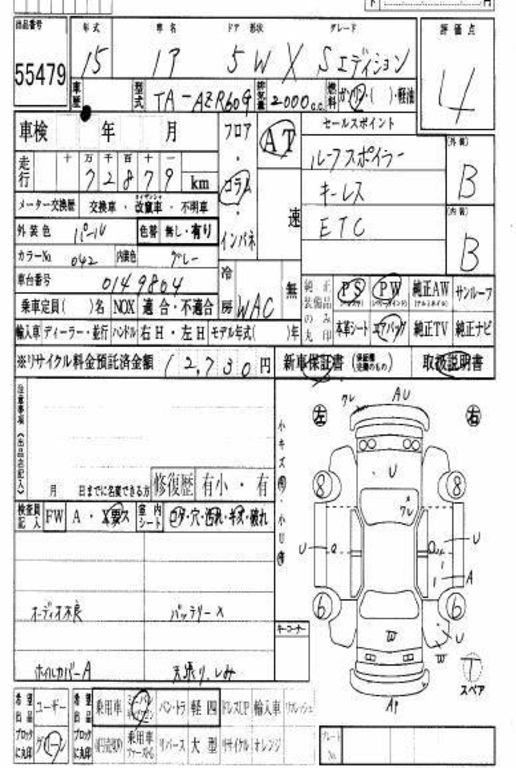 出品番号 年式 車名 ドア 形状 グレード 評価点
55479 15 5 W X Sエディション 4
車歴 型式 TA-AZR60G 排気量 2000 c.c. 燃料 ガソリン・( )・軽油
車検 年 月 フロア・コラム・インパネ AT 速 セールスポイント
ルーフスポイラー
キーレス
ETC
(外装) B
(内装) B
走行 十 万 千 百 十 一
72879 km
メーター交換歴 交換車・改竄車・不明車
外装色 パール 色替 無し・有り
カラーNo. 042 内装色 グレー
車台番号 0149804
冷房 WAC 無
純正装備品のみ丸印 PS PW 純正AW サンルーフ
本革シート エアバッグ 純正TV 純正ナビ
乗車定員( )名 NOX 適合・不適合
輸入車 ディーラー・並行 ハンドル 右H・左H モデル年式( )年
※リサイクル料金預託済金額 12,730円 新車保証書 取扱説明書
注意事項(出品店記入)
月 日までに名変できる方 修復歴 有小・有
検査員記入 FW A・X要ス 室内シート コゲ・穴・汚れ・キズ・破れ
オーディオ不良 バッテリーX
ホイルカバーA 天張り、しみ
キーコーナー
左 右
クレ AU
U
8 8
クレ
U U
A
6 6
U
AP
スペア
希望出品ブロックに丸印 ユーザー
希望出品ブロックに丸印 乗用車 バン・トラ 軽四 ドレスUP 輸入車 リフレッシュ
リバース 大型 リサイクル オレンジ